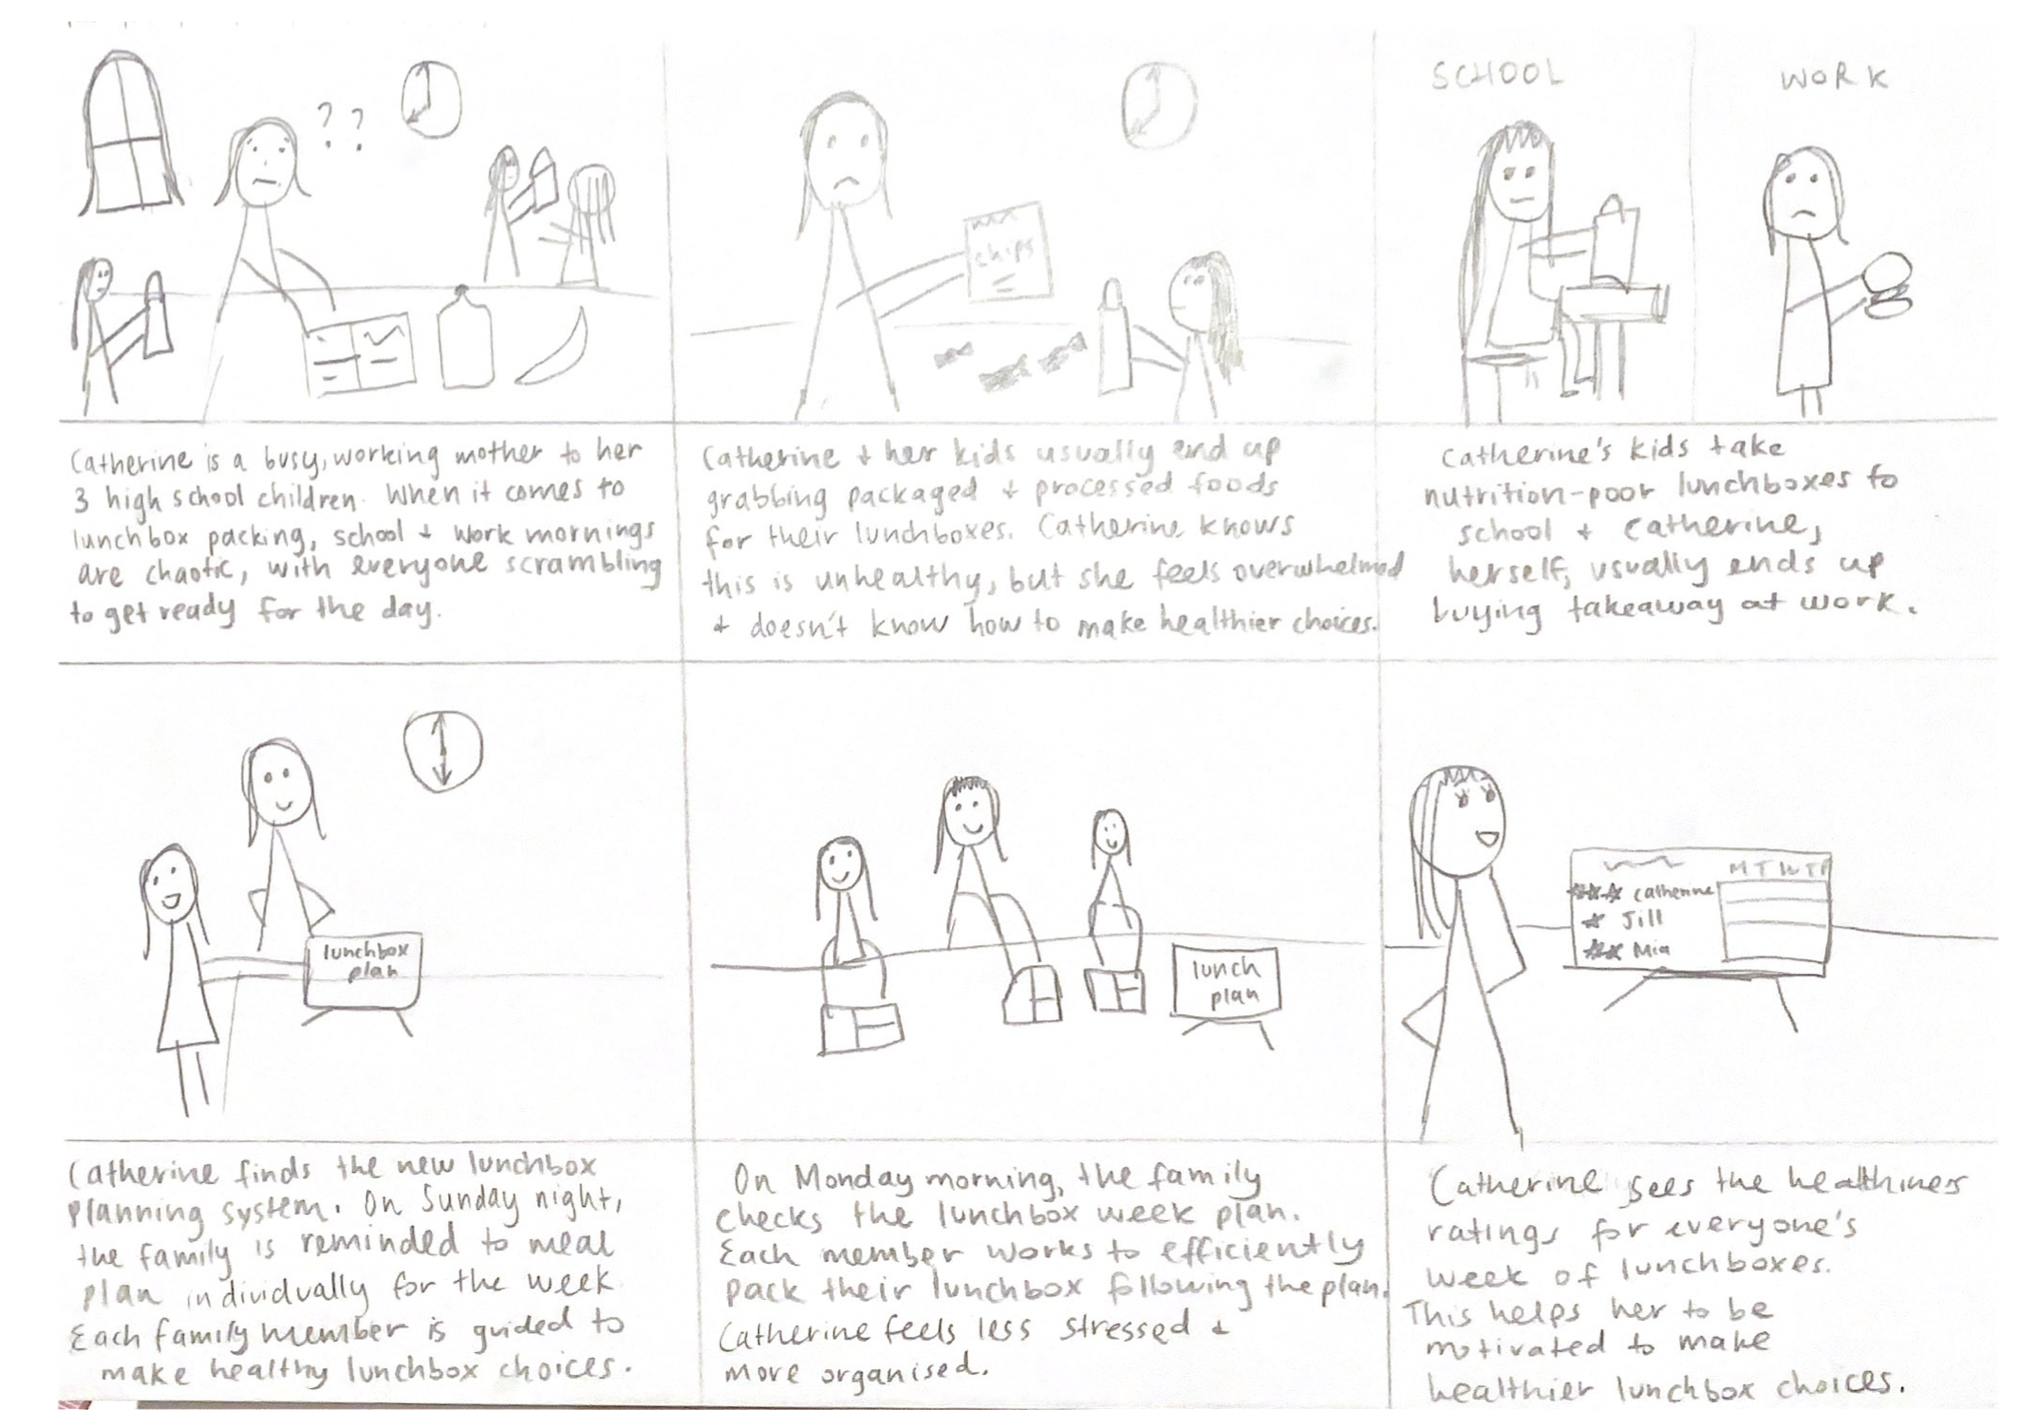 ? ?
chips
SCHOOL
WORK
Catherine is a busy, working mother to her
3 high school children. When it comes to
lunchbox packing, school + work mornings
are chaotic, with everyone scrambling
to get ready for the day.
Catherine + her kids usually end up
grabbing packaged + processed foods
for their lunchboxes. Catherine knows
this is unhealthy, but she feels overwhelmed
+ doesn't know how to make healthier choices.
Catherine's kids take
nutrition-poor lunchboxes to
school + Catherine,
herself, usually ends up
buying takeaway at work.
lunchbox
plan
lunch
plan
M T W T F
Catherine
Jill
Mia
Catherine finds the new lunchbox
planning system. On Sunday night,
the family is reminded to meal
plan individually for the week.
Each family member is guided to
make healthy lunchbox choices.
On Monday morning, the family
checks the lunchbox week plan.
Each member works to efficiently
pack their lunchbox following the plan.
Catherine feels less stressed +
more organised.
Catherine sees the healthiness
ratings for everyone's
week of lunchboxes.
This helps her to be
motivated to make
healthier lunchbox choices.